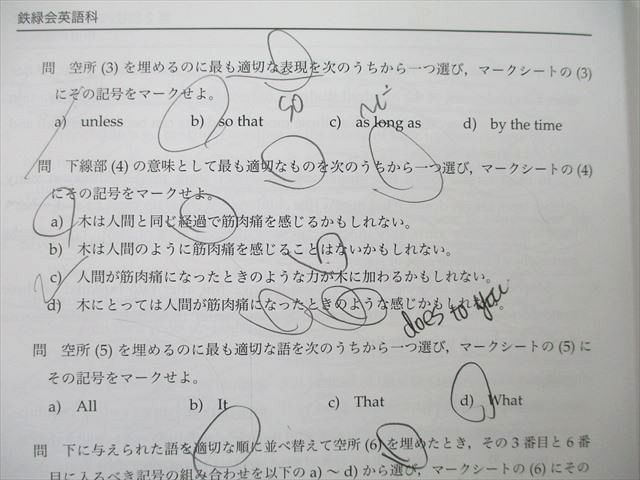 鉄緑会英語科
問 空所 (3) を埋めるのに最も適切な表現を次のうちから一つ選び，マークシートの (3)
にその記号をマークせよ。
so
a) unless b) so that c) as long as d) by the time
問 下線部 (4) の意味として最も適切なものを次のうちから一つ選び，マークシートの (4)
にその記号をマークせよ。
a) 木は人間と同じ経過で筋肉痛を感じるかもしれない。
b) 木は人間のように筋肉痛を感じることはないかもしれない。
c) 人間が筋肉痛になったときのような力が木に加わるかもしれない。
d) 木にとっては人間が筋肉痛になったときのような感じかもしれ。
does to you
問 空所 (5) を埋めるのに最も適切な語を次のうちから一つ選び，マークシートの (5) に
その記号をマークせよ。
a) All b) It c) That d) What
問 下に与えられた語を適切な順に並べ替えて空所 (6) を埋めたとき，その 3 番目と 6 番
目に入るべき記号の組み合わせを以下の a) ～ d) から選び，マークシートの (6) にその